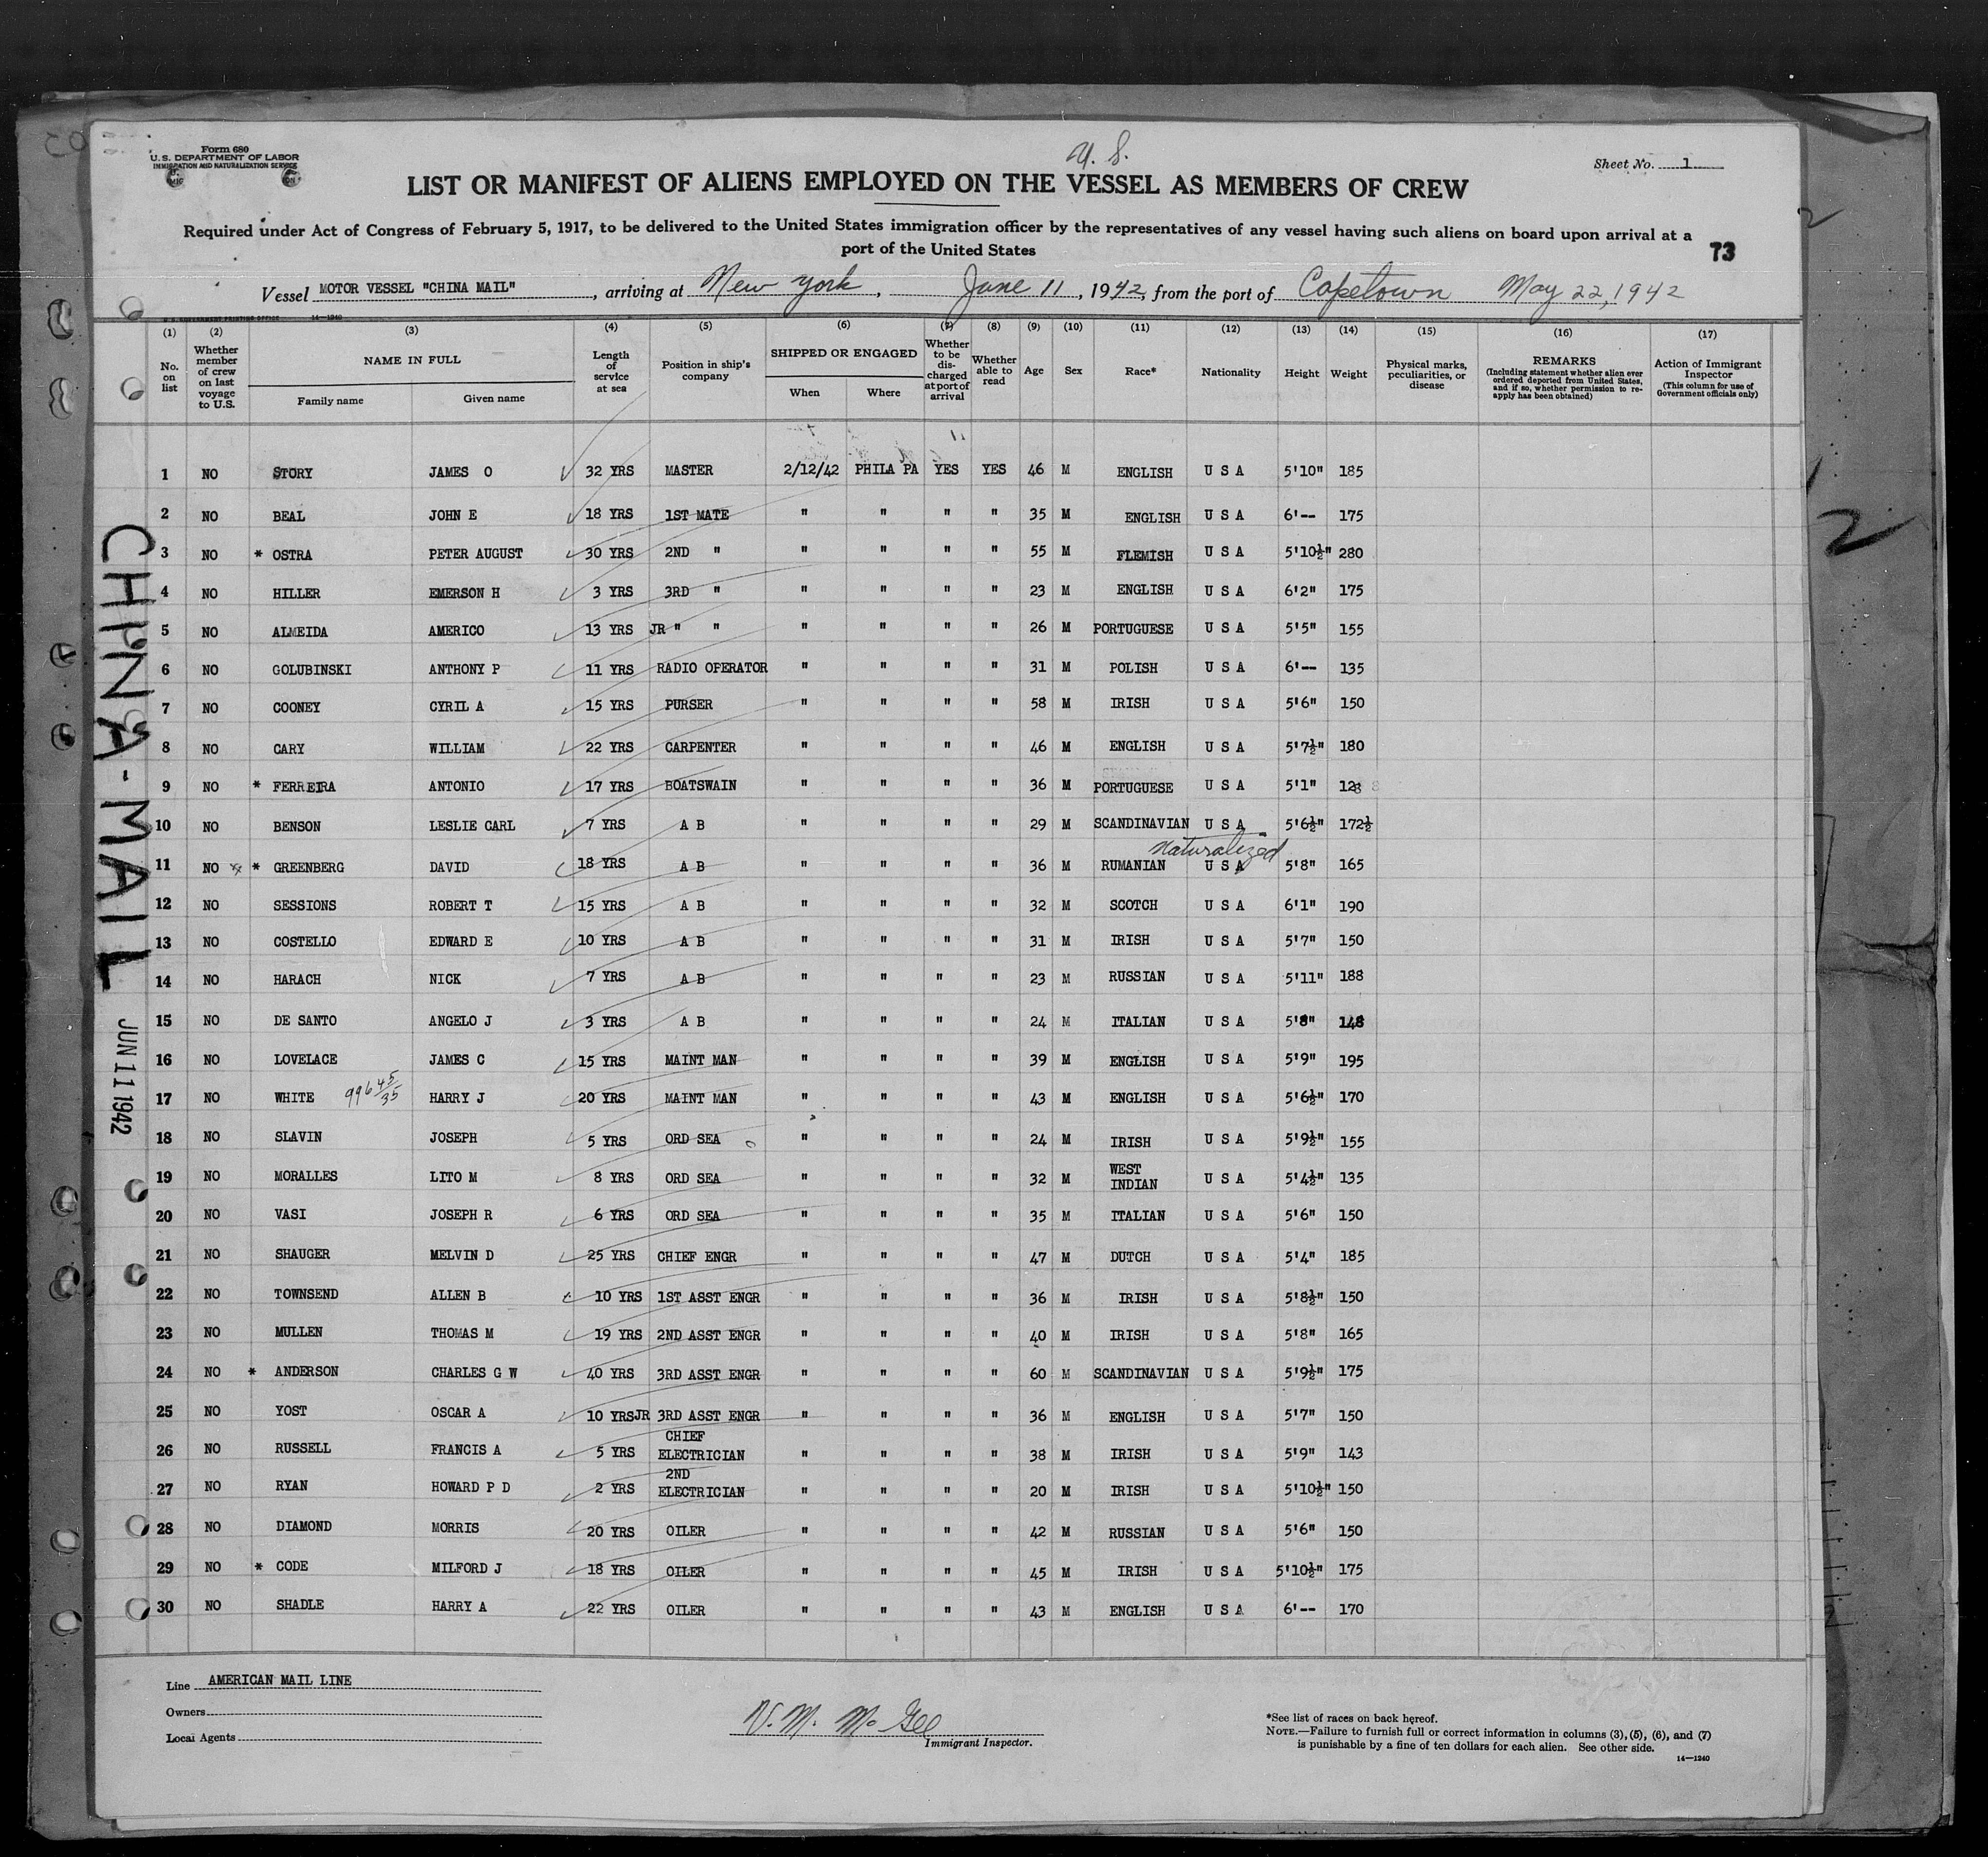 Form 680
U.S. DEPARTMENT OF LABOR
IMMIGRATION AND NATURALIZATION SERVICE
U. S.
Sheet No. 1
LIST OR MANIFEST OF ALIENS EMPLOYED ON THE VESSEL AS MEMBERS OF CREW
Required under Act of Congress of February 5, 1917, to be delivered to the United States immigration officer by the representatives of any vessel having such aliens on board upon arrival at a
port of the United States
73
Vessel MOTOR VESSEL "CHINA MAIL", arriving at New York, June 11, 1942, from the port of Capetown May 22, 1942
U.S. GOVERNMENT PRINTING OFFICE 14—1240
(1) (2) (3) (4) (5) (6) (7) (8) (9) (10) (11) (12) (13) (14) (15) (16) (17)
No. on list
Whether member of crew on last voyage to U.S.
NAME IN FULL
Family name Given name
Length of service at sea
Position in ship's company
SHIPPED OR ENGAGED
When Where
Whether to be discharged at port of arrival
Whether able to read
Age Sex Race* Nationality Height Weight
Physical marks, peculiarities, or disease
REMARKS
(Including statement whether alien ever ordered deported from United States, and if so, whether permission to reapply has been obtained)
Action of Immigrant Inspector
(This column for use of Government officials only)
1 NO STORY JAMES O 32 YRS MASTER 2/12/42 PHILA PA YES YES 46 M ENGLISH U S A 5'10" 185
2 NO BEAL JOHN E 18 YRS 1ST MATE " " " " 35 M ENGLISH U S A 6'-- 175
3 NO * OSTRA PETER AUGUST 30 YRS 2ND " " " " " 55 M FLEMISH U S A 5'10½" 280
4 NO HILLER EMERSON H 3 YRS 3RD " " " " " 23 M ENGLISH U S A 6'2" 175
5 NO ALMEIDA AMERICO 13 YRS JR " " " " " " 26 M PORTUGUESE U S A 5'5" 155
6 NO GOLUBINSKI ANTHONY P 11 YRS RADIO OPERATOR " " " " 31 M POLISH U S A 6'-- 135
7 NO COONEY CYRIL A 15 YRS PURSER " " " " 58 M IRISH U S A 5'6" 150
8 NO CARY WILLIAM 22 YRS CARPENTER " " " " 46 M ENGLISH U S A 5'7½" 180
9 NO * FERREIRA ANTONIO 17 YRS BOATSWAIN " " " " 36 M PORTUGUESE U S A 5'1"
10 NO BENSON LESLIE CARL 7 YRS A B " " " " 29 M SCANDINAVIAN U S A 5'6½" 172½
Naturalized
11 NO * GREENBERG DAVID 18 YRS A B " " " " 36 M RUMANIAN U S A 5'8" 165
12 NO SESSIONS ROBERT T 15 YRS A B " " " " 32 M SCOTCH U S A 6'1" 190
13 NO COSTELLO EDWARD E 10 YRS A B " " " " 31 M IRISH U S A 5'7" 150
14 NO HARACH NICK 7 YRS A B " " " " 23 M RUSSIAN U S A 5'11" 188
15 NO DE SANTO ANGELO J 3 YRS A B " " " " 24 M ITALIAN U S A 5'8" 148
16 NO LOVELACE JAMES C 15 YRS MAINT MAN " " " " 39 M ENGLISH U S A 5'9" 195
17 NO WHITE 996 45/35 HARRY J 20 YRS MAINT MAN " " " " 43 M ENGLISH U S A 5'6½" 170
18 NO SLAVIN JOSEPH 5 YRS ORD SEA " " " " 24 M IRISH U S A 5'9½" 155
19 NO MORALLES LITO M 8 YRS ORD SEA " " " " 32 M WEST INDIAN U S A 5'4½" 135
20 NO VASI JOSEPH R 6 YRS ORD SEA " " " " 35 M ITALIAN U S A 5'6" 150
21 NO SHAUGER MELVIN D 25 YRS CHIEF ENGR " " " " 47 M DUTCH U S A 5'4" 185
22 NO TOWNSEND ALLEN B 10 YRS 1ST ASST ENGR " " " " 36 M IRISH U S A 5'8½" 150
23 NO MULLEN THOMAS M 19 YRS 2ND ASST ENGR " " " " 40 M IRISH U S A 5'8" 165
24 NO * ANDERSON CHARLES G W 40 YRS 3RD ASST ENGR " " " " 60 M SCANDINAVIAN U S A 5'9½" 175
25 NO YOST OSCAR A 10 YRS JR 3RD ASST ENGR " " " " 36 M ENGLISH U S A 5'7" 150
26 NO RUSSELL FRANCIS A 5 YRS CHIEF ELECTRICIAN " " " " 38 M IRISH U S A 5'9" 143
27 NO RYAN HOWARD P D 2 YRS 2ND ELECTRICIAN " " " " 20 M IRISH U S A 5'10½" 150
28 NO DIAMOND MORRIS 20 YRS OILER " " " " 42 M RUSSIAN U S A 5'6" 150
29 NO * CODE MILFORD J 18 YRS OILER " " " " 45 M IRISH U S A 5'10½" 175
30 NO SHADLE HARRY A 22 YRS OILER " " " " 43 M ENGLISH U S A 6'-- 170
CHINA-MAIL
JUN 11 1942
2
2
Line AMERICAN MAIL LINE
Owners
Local Agents
V. M. McGee
Immigrant Inspector.
*See list of races on back hereof.
NOTE.—Failure to furnish full or correct information in columns (3), (5), (6), and (7)
is punishable by a fine of ten dollars for each alien. See other side.
14—1240